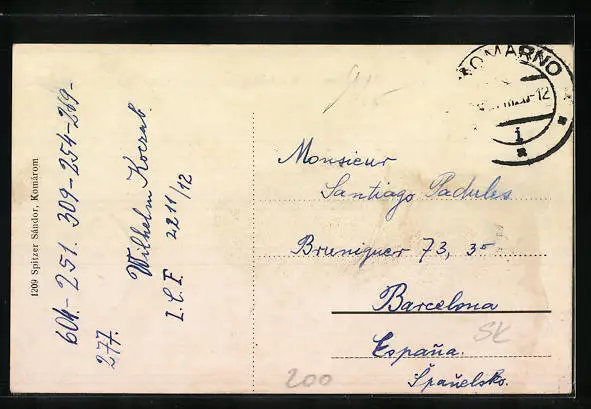 1209 Spitzer Sándor, Komárom
604- 251. 309-254-269-
277.
Wilhelm
I.C.F. 2211/12
KOMARNO
12
1
Monsieur
Santiago Padules
Bruniquer 73, 3º
Barcelona
España.
Španělsko.
SK
200